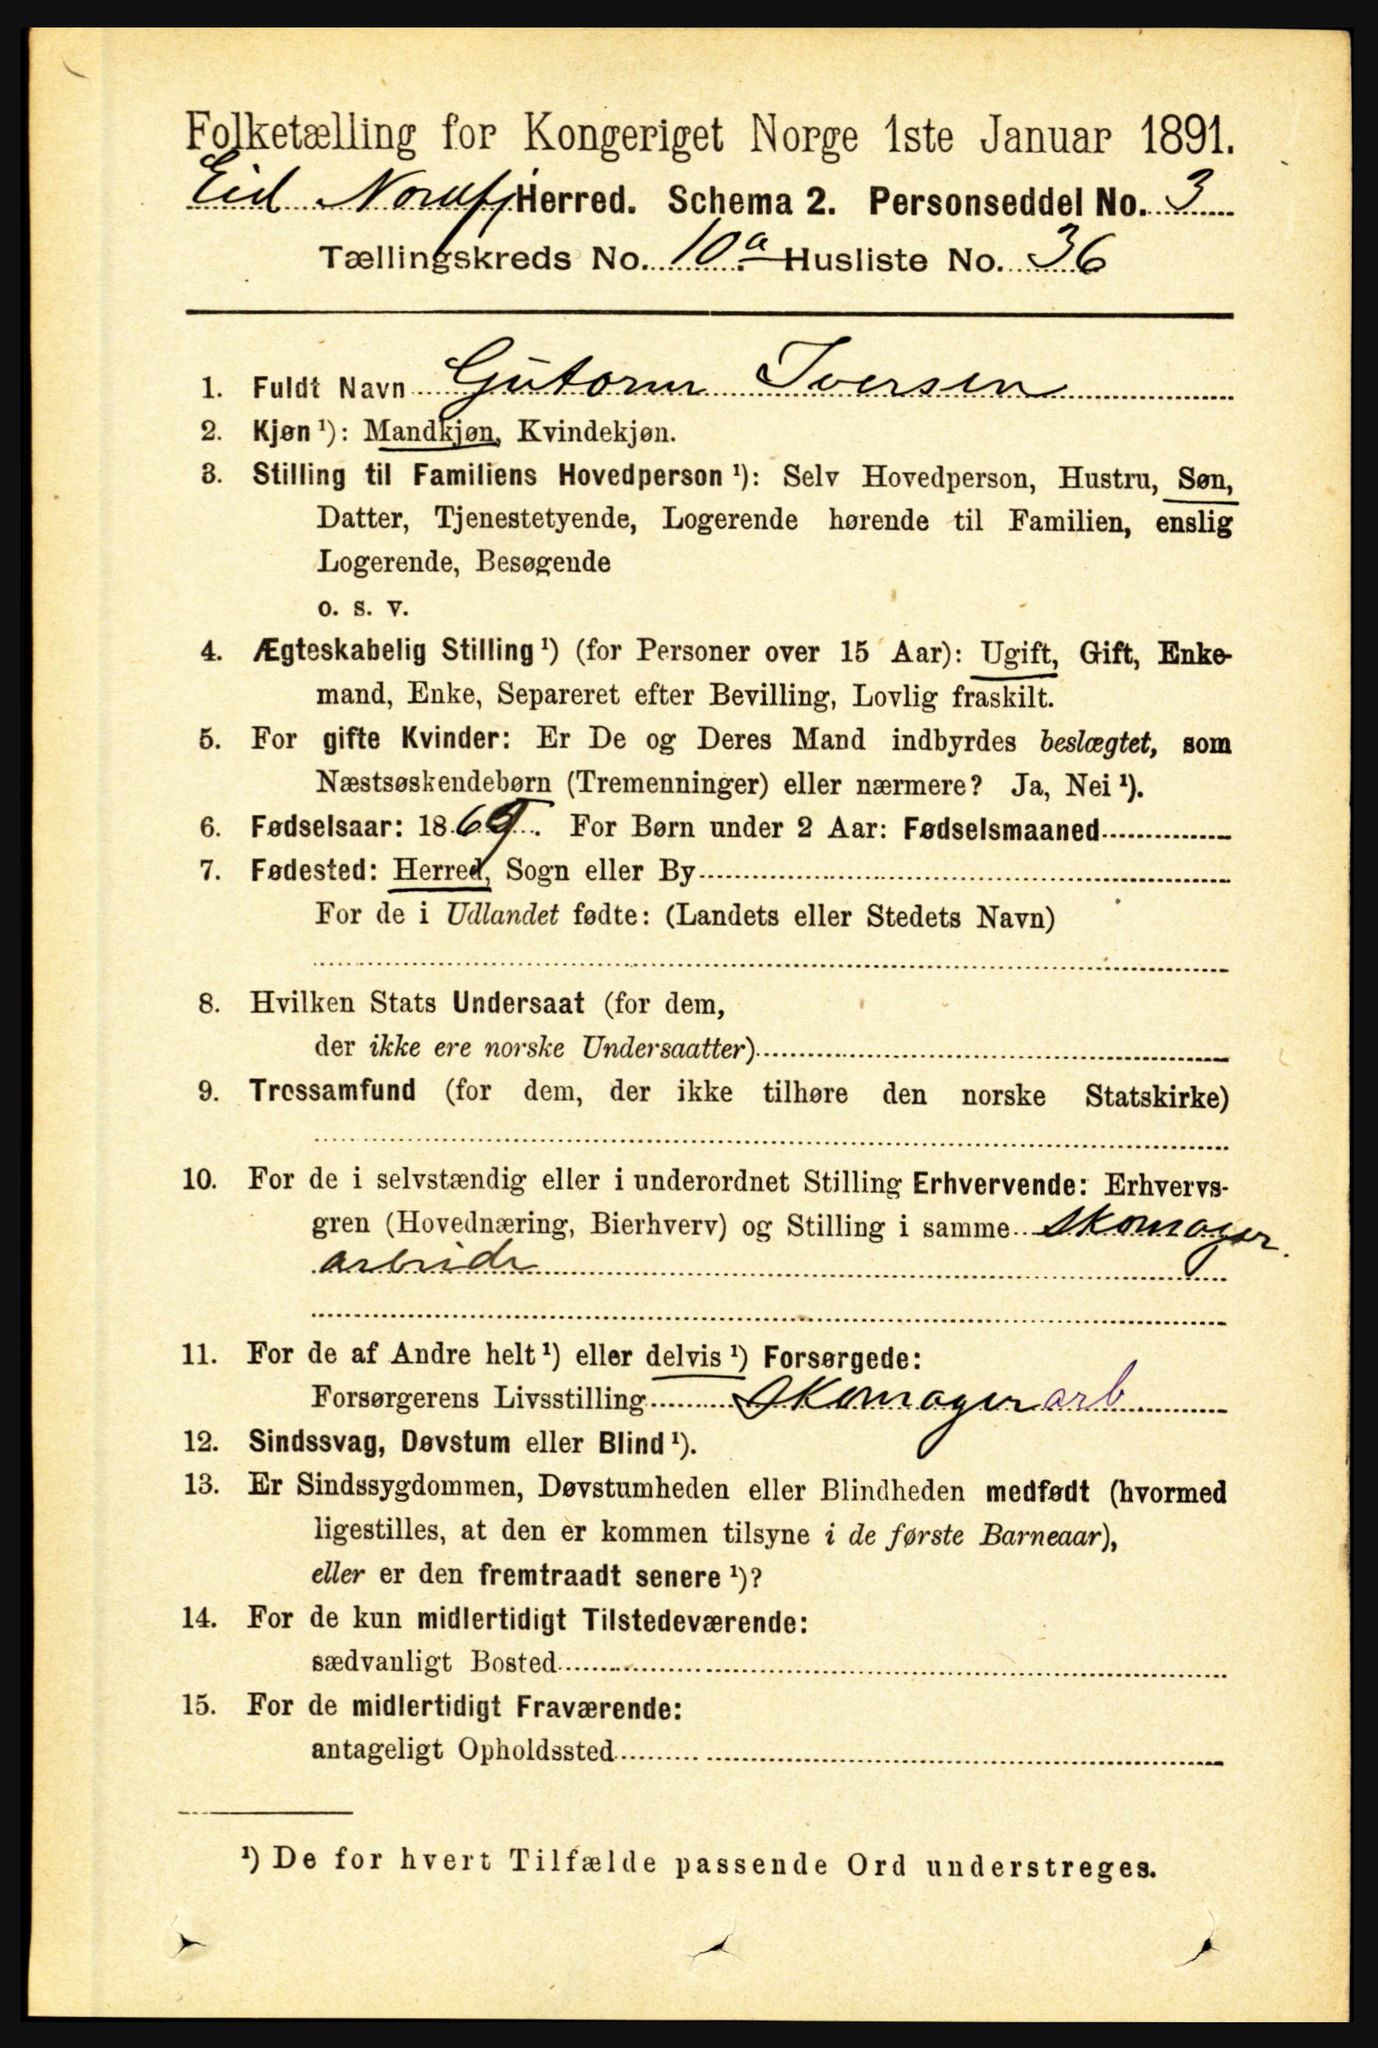 Folketælling for Kongeriget Norge 1ste Januar 1891.
Eid Nordfj Herred. Schema 2. Personseddel No. 3
Tællingskreds No. 10a Husliste No. 36
1. Fuldt Navn Gutorm Iversen
2. Kjøn ¹): Mandkjøn, Kvindekjøn.
3. Stilling til Familiens Hovedperson ¹): Selv Hovedperson, Hustru, Søn,
Datter, Tjenestetyende, Logerende hørende til Familien, enslig
Logerende, Besøgende
o. s. v.
4. Ægteskabelig Stilling ¹) (for Personer over 15 Aar): Ugift, Gift, Enke-
mand, Enke, Separeret efter Bevilling, Lovlig fraskilt.
5. For gifte Kvinder: Er De og Deres Mand indbyrdes beslægtet, som
Næstsøskendebørn (Tremenninger) eller nærmere? Ja, Nei ¹).
6. Fødselsaar: 1869. For Børn under 2 Aar: Fødselsmaaned
7. Fødested: Herred, Sogn eller By
For de i Udlandet fødte: (Landets eller Stedets Navn)
8. Hvilken Stats Undersaat (for dem,
der ikke ere norske Undersaatter)
9. Trossamfund (for dem, der ikke tilhøre den norske Statskirke)
10. For de i selvstændig eller i underordnet Stilling Erhvervende: Erhvervs-
gren (Hovednæring, Bierhverv) og Stilling i samme Skomager
arbeide
11. For de af Andre helt ¹) eller delvis ¹) Forsørgede:
Forsørgerens Livsstilling Skomager arb
12. Sindssvag, Døvstum eller Blind ¹).
13. Er Sindssygdommen, Døvstumheden eller Blindheden medfødt (hvormed
ligestilles, at den er kommen tilsyne i de første Barneaar),
eller er den fremtraadt senere ¹)?
14. For de kun midlertidigt Tilstedeværende:
sædvanligt Bosted
15. For de midlertidigt Fraværende:
antageligt Opholdssted
¹) De for hvert Tilfælde passende Ord understreges.